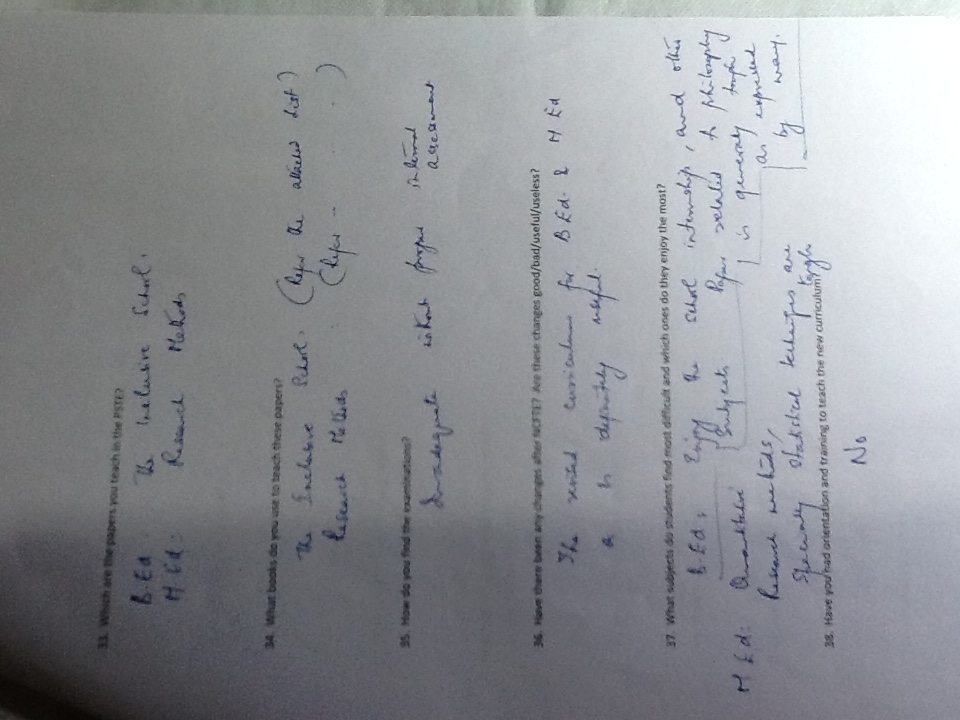 33. Which are the papers you teach in the PSTE?
B.Ed: The Inclusive School.
M Ed: Research Methods
34. What books do you use to teach these papers?
The Inclusive School: (Refer the attached list)
Research Methods : (Refer - . . . . )
35. How do you find the examinations?
Inadequate without proper internal
assessment
36. Have there been any changes after NCFTE? Are these changes good/bad/useful/useless?
The revised curriculum for B Ed. & M Ed
is definitely useful.
37. What subjects do students find most difficult and which ones do they enjoy the most?
B.Ed: Enjoy the school internship, and other
subjects. Paper related to philosophy
is generally tough
as expressed
by many.
M Ed: Quantitative
Research methods,
Specially Statistical techniques are
tough
38. Have you had orientation and training to teach the new curriculum?
No